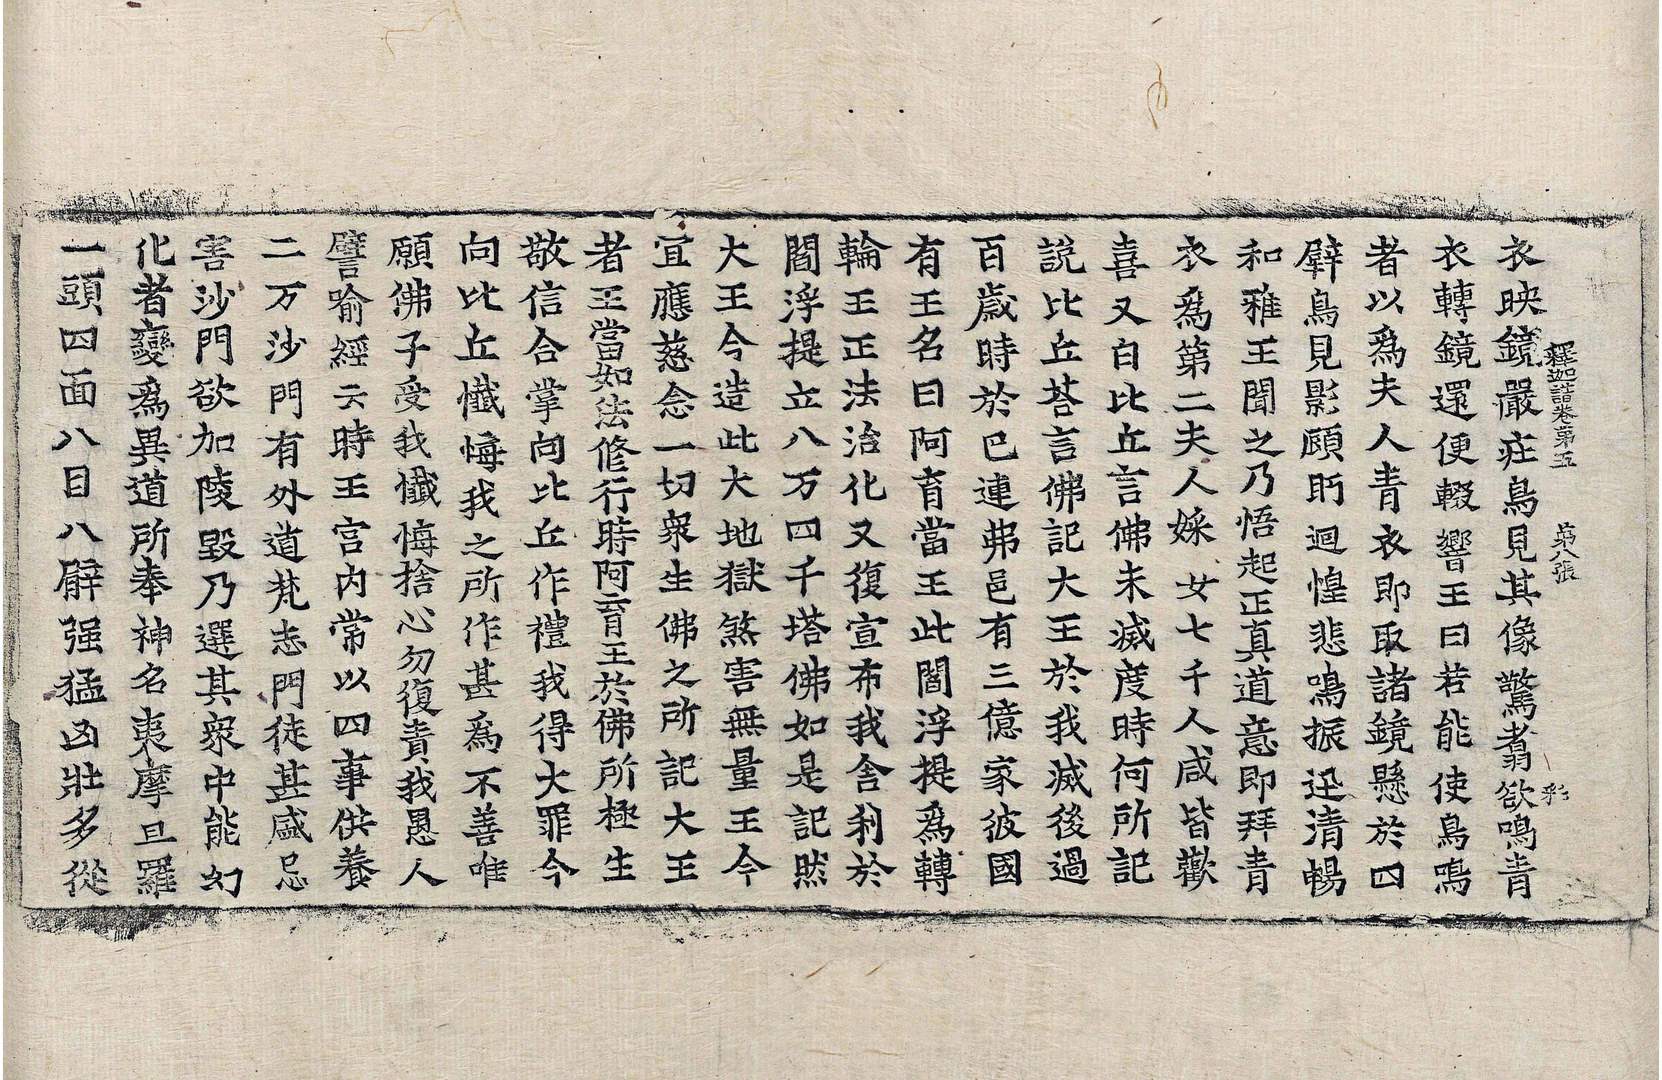 釋迦譜卷第五 第八張 彩
衣映鏡嚴庄鳥見其像驚翥欲鳴青
衣轉鏡還便輟響王曰若能使鳥鳴
者以爲夫人青衣即取諸鏡懸於四
壁鳥見影顧眄迴惶悲鳴振迅清暢
和雅王聞之乃悟起正真道意即拜青
衣爲第二夫人婇女七千人咸皆歡
喜又白比丘言佛未滅度時何所記
說比丘荅言佛記大王於我滅後過
百歲時於巴連弗邑有三億家彼國
有王名曰阿育當王此閻浮提爲轉
輪王正法治化又復宣布我舍利於
閻浮提立八万四千塔佛如是記然
大王今造此大地獄煞害無量王今
宜應慈念一切衆生佛之所記大王
者王當如法修行時阿育王於佛所極生
敬信合掌向比丘作禮我得大罪今
向比丘懺悔我之所作甚爲不善唯
願佛子受我懺悔捨心勿復責我愚人
譬喻經云時王宮内常以四事供養
二万沙門有外道梵志門徒甚盛忌
害沙門欲加陵毀乃選其衆中能幻
化者變爲異道所奉神名夷摩旦羅
一頭四面八目八臂强猛凶壯多從